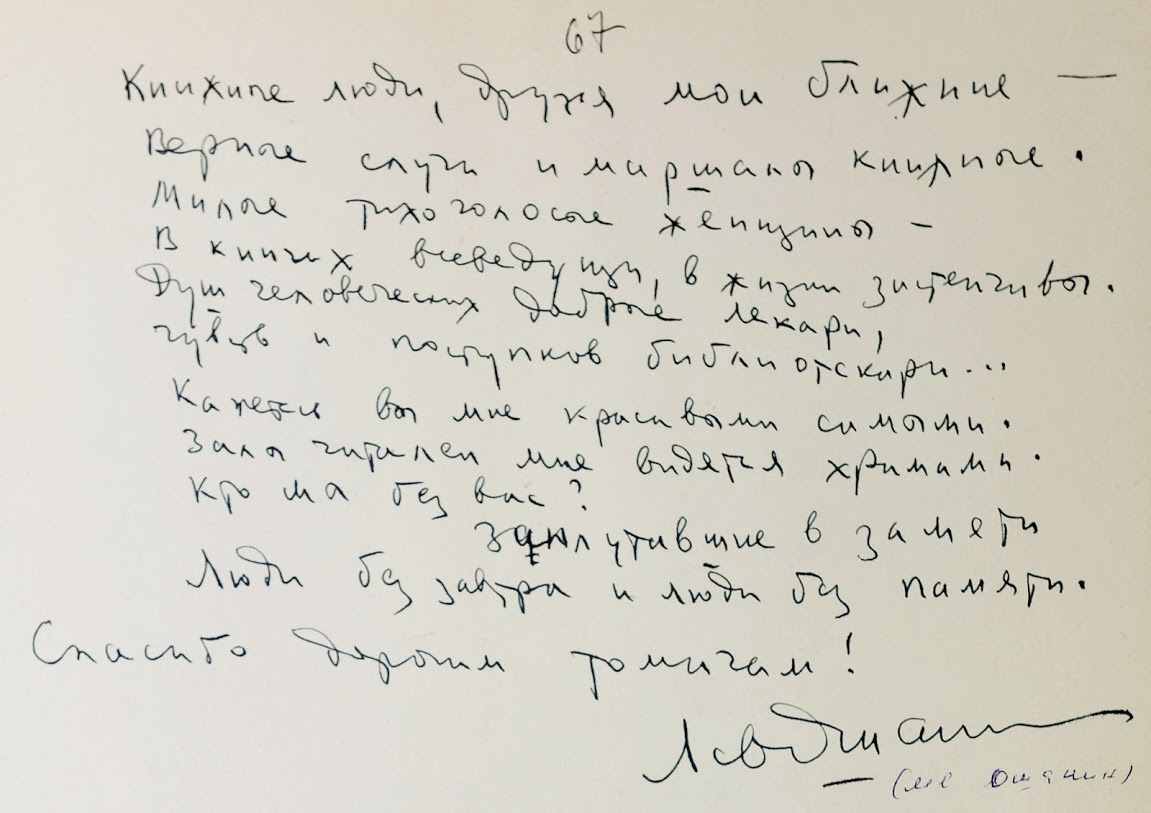 67
Книжные люди, друзья мои ближние —
Верные слуги и маршалы книжные.
Милые тихоголосые женщины —
В книгах всеведущи, в жизни застенчивы.
Душ человеческих добрые лекари,
Чувств и поступков библиотекари...
Кажетесь вы мне красивыми самыми.
Залы читален мне видятся храмами.
Кто мы без вас?
Заплутавшие в замети
Люди без завтра и люди без памяти.
Спасибо дорогим томичам!
Лев Ошанин
(Лев Ошанин)